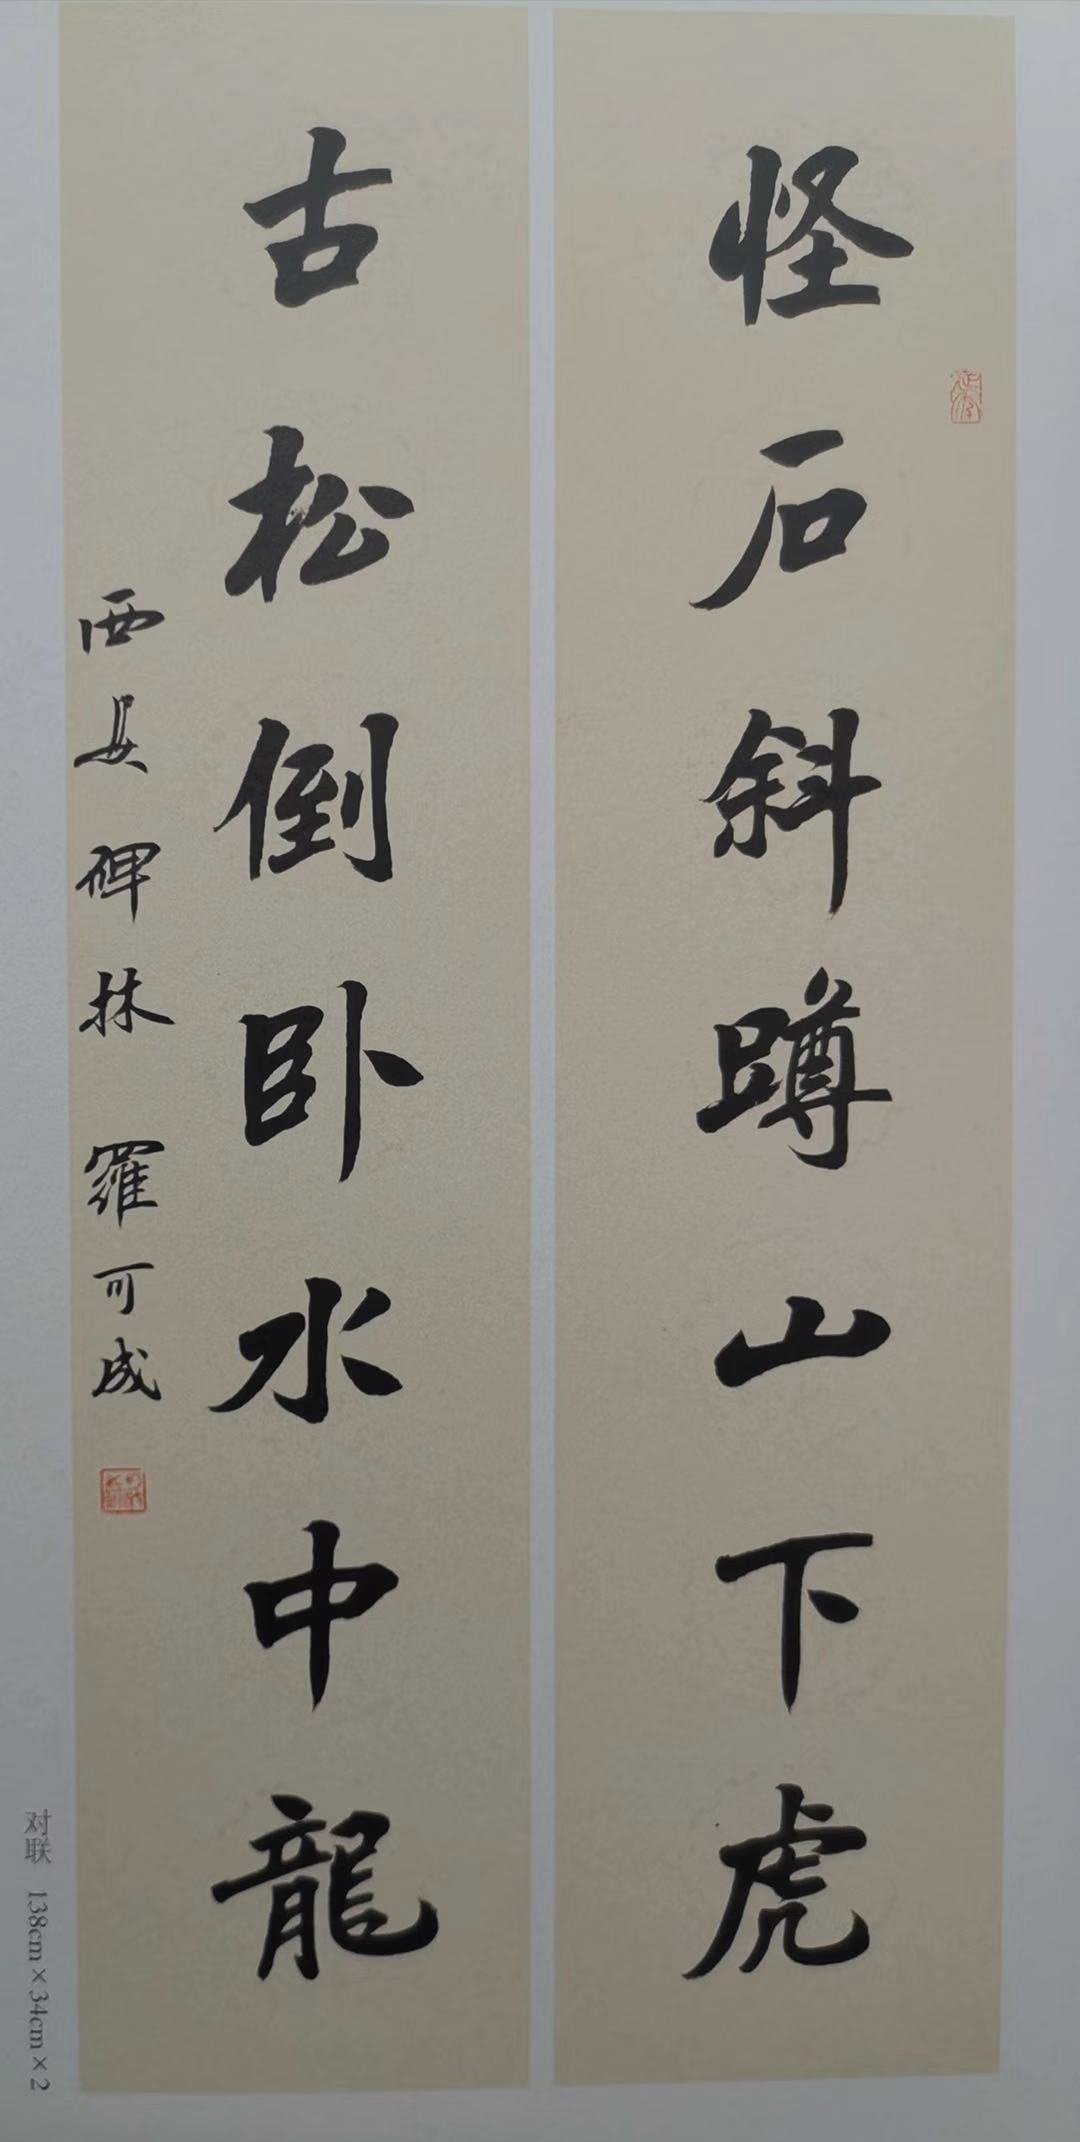 怪石斜蹲山下虎
古松倒卧水中龍
西安碑林羅可成
对联 138cm×34cm×2